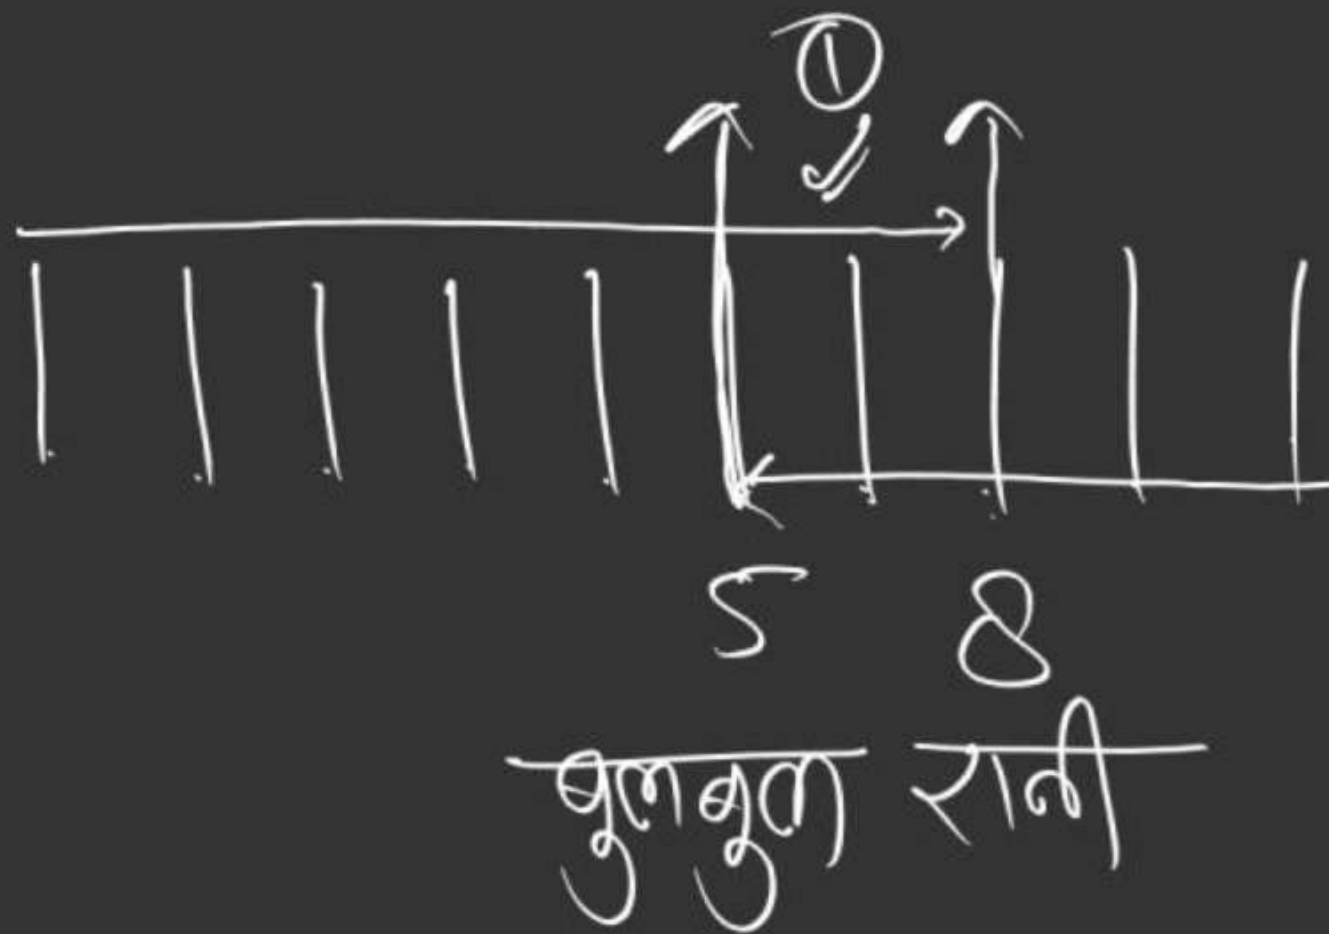 ①
5 8
बुलबुल रानी